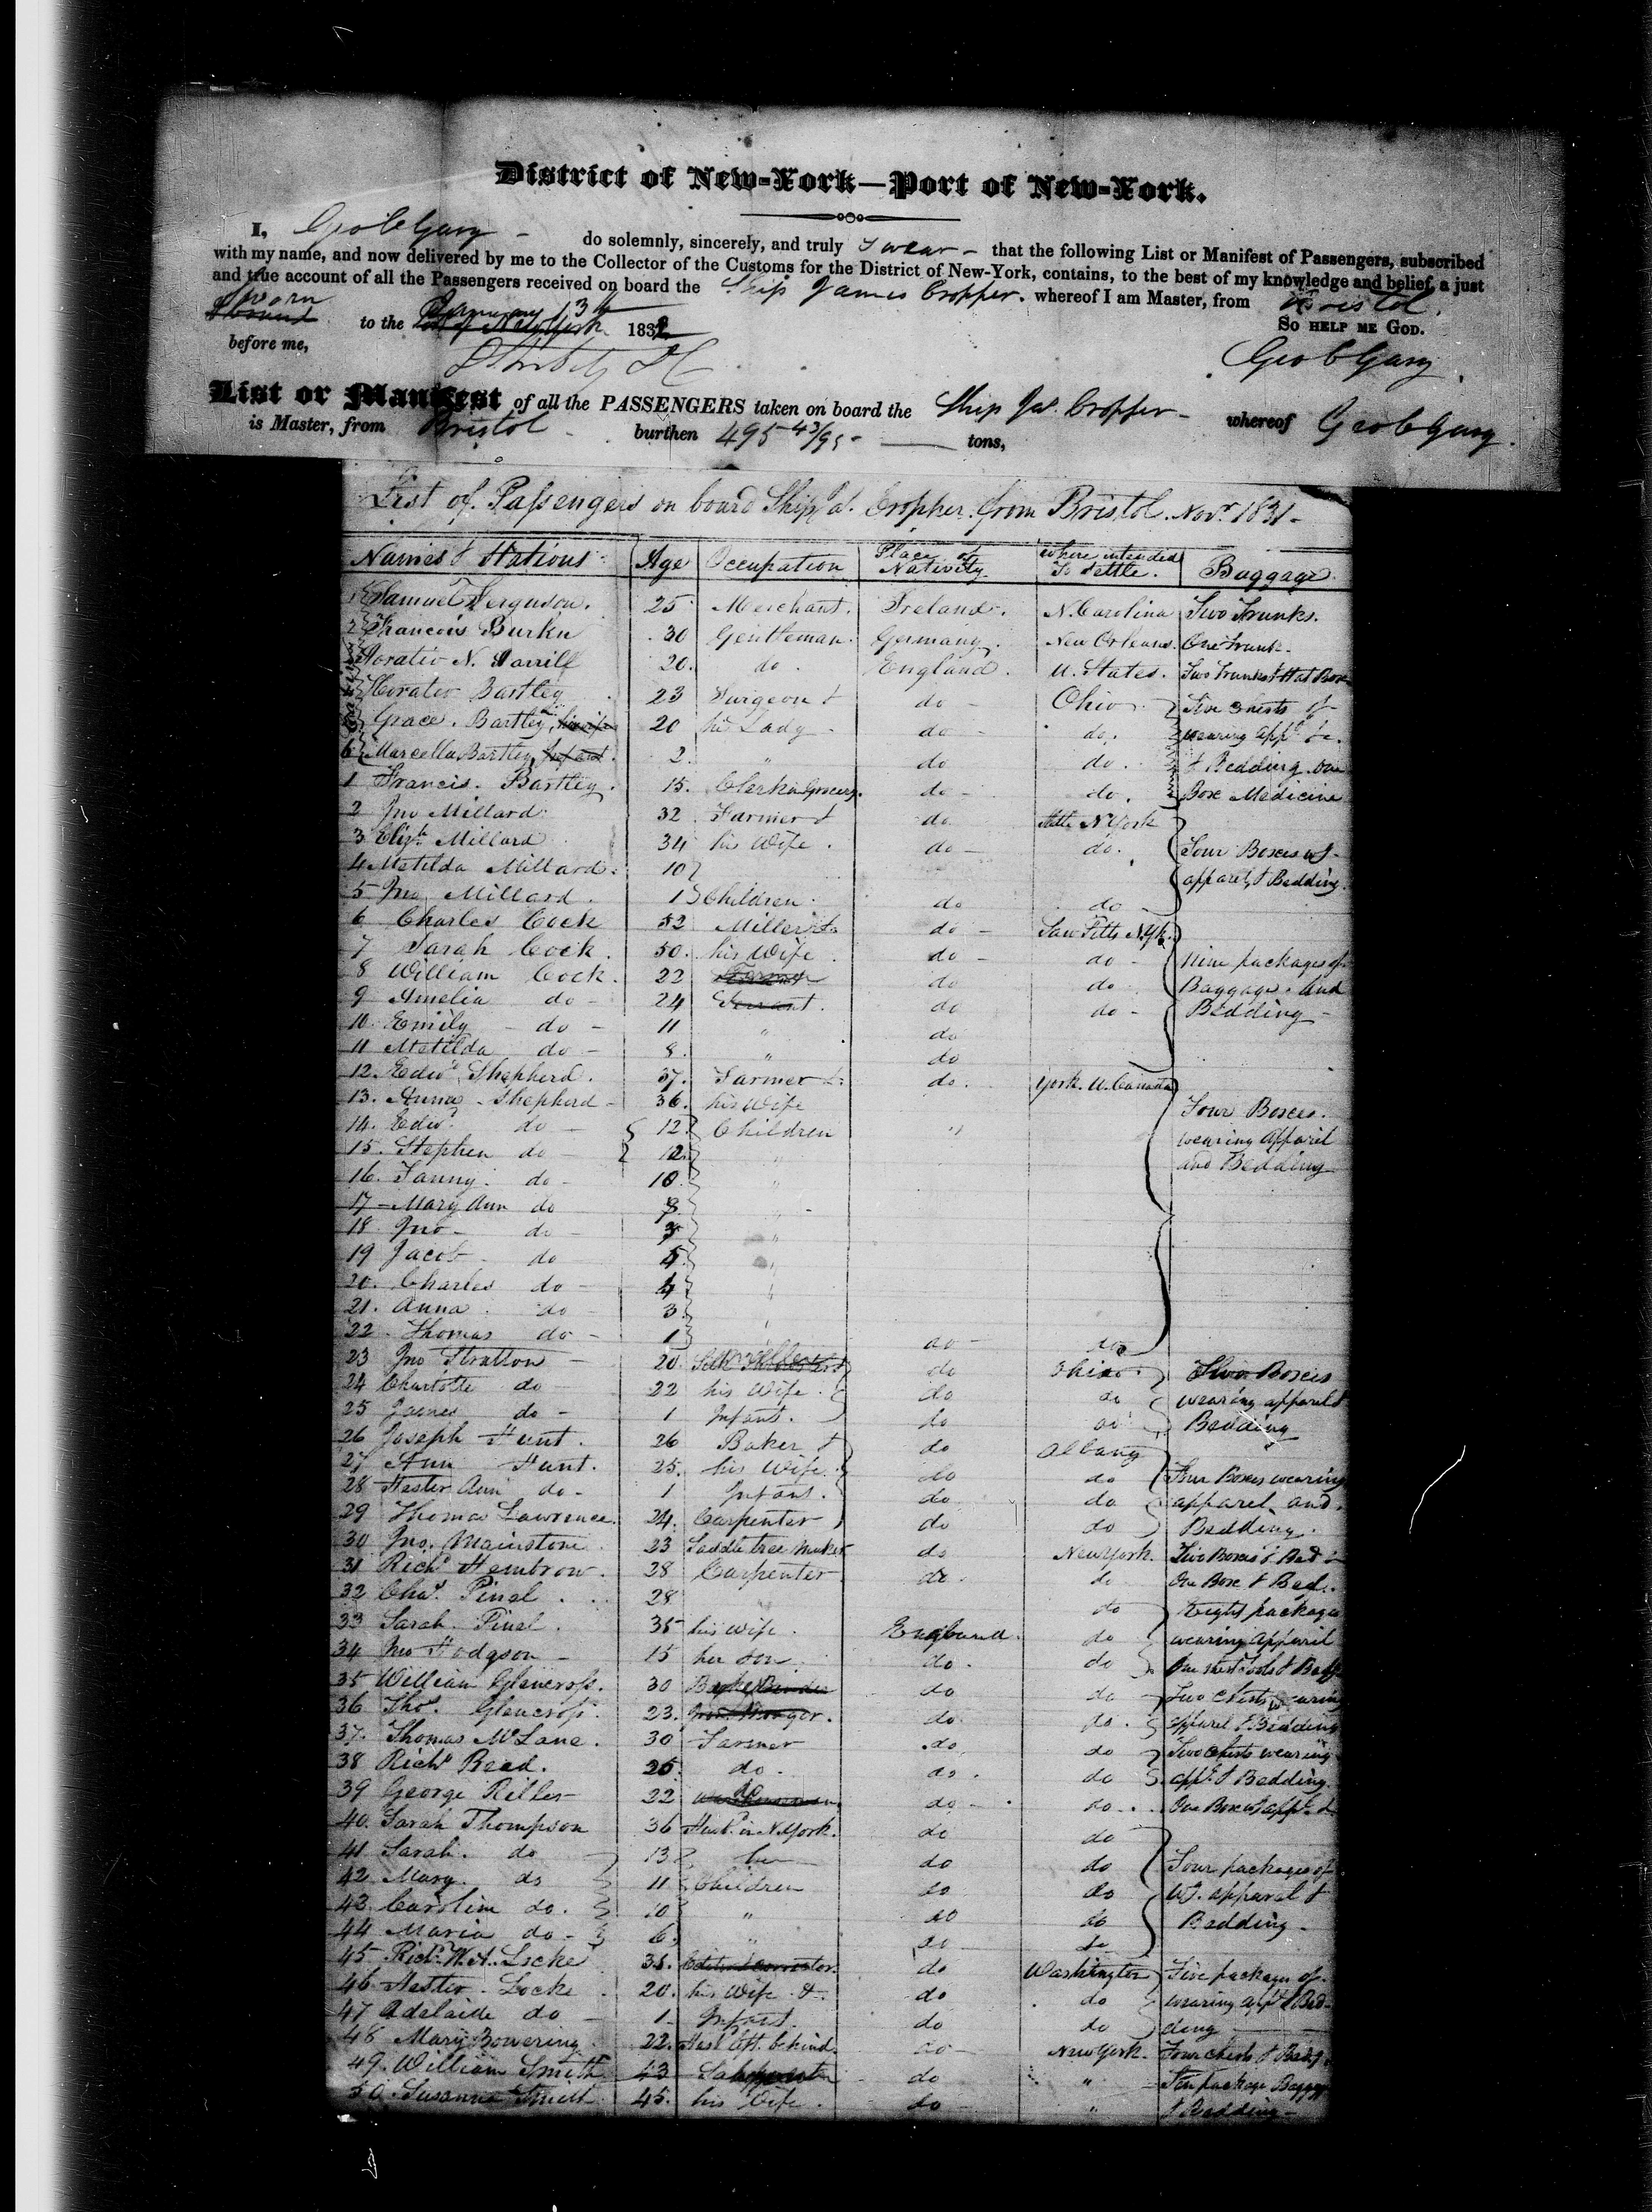 District of New-York—Port of New-York.
I, Geo C Gary - do solemnly, sincerely, and truly swear - that the following List or Manifest of Passengers, subscribed
with my name, and now delivered by me to the Collector of the Customs for the District of New-York, contains, to the best of my knowledge and belief, a just
and true account of all the Passengers received on board the Ship James Cropper. whereof I am Master, from Bristol.
Sworn So help me God.
to the January 13th 1832
before me, Geo C Gary
List or Manifest of all the PASSENGERS taken on board the Ship Jas. Cropper - whereof Geo C Gary.
is Master, from Bristol burthen 495 43/95 - tons,
List of Passengers on board Ship Js. Cropper from Bristol. Novr. 1831 -
Names & Stations Age Occupation Place of Nativity Where intended To Settle. Baggage
1 Samuel Ferguson. 25 Merchant. Ireland. N. Carolina Two Trunks.
2 Francois Burkn 30 Gentleman. Germany. New Orleans. One Trunk.
3 Horatio N. 20. do. England. U. States. Two Trunks & Hat Box
4 Horatio Bartley 23 Surgeon & do - Ohio Five Chests of
5 Grace. Bartley, his wife 20 his Lady - do - do. wearing appl. &c.
6 Marcella Bartley, Infant. 2. " do do. & Bedding one
1 Francis. Bartley. 15. Clerk in Grocery. do - do. Box Medicine
2 Jno Millard 32 Farmer & do N York
3 Elizth. Millard 34 his Wife. do - do. Four Boxes w -
4 Matilda Millard. 10 apparel, & Bedding.
5 Jno Millard. 1 Children. do do -
6 Charles Cock 52 Miller & do - N.Yk.
7 Sarah Cock. 50. his Wife. do - do - Nine packages of
8 William Cock. 22 do do Baggage. and
9 Amelia do - 24 Servant. do do - Bedding -
10. Emily - do - 11 " do
11 Matilda do - 8. " do
12. Edwd. Shepherd. 37. Farmer & do. York. U. Canada
13. Anna - Shepherd - 36. his Wife Four Boxes.
14. Edwd. do - 12. Children " wearing Apparel
15. Stephen do - 12. " and Bedding
16. Fanny. do - 10. "
17 - Mary Ann do
18 Jno - do -
19 Jacob do
20. Charles do - 4
21. Anna. do 3
22. Thomas do - 1 " do - do
23 Jno Stratton - 20. do Ohio. Two Boxes
24 Charlotte do - 22 his Wife. do do wearing apparel &
25 James do - 1 Infant. do do Bedding
26 Joseph Hunt. 26 Baker & do Albany
27 Ann Hunt. 25. his Wife. do do Four Boxes wearing
28 Hester Ann do - 1 Infant. do do apparel and
29 Thomas Lawrence. 24. Carpenter do do Bedding.
30 Jno. Mainstone. 23 Saddle tree Maker do New York. Two Boxes & Bed
31 Richd. Hembrow. 28 Carpenter do. do One Box & Bed.
32 Chas. Pinel. 28 do Eight packages
33 Sarah. Pinel. 35 his Wife. England. do wearing apparel
34 Jno Hodgson - 15 her son do. do One chest Tools & Bedg.
35 William Glencross. 30 do do Two Chests wearing
36 Thos. Glencross. 23. do. do. apparel & Bedding
37. Thomas McLane. 30 Farmer do do Two Chests wearing
38 Richd. Reed. 25. do. do. do appl. & Bedding.
39 George Riller 22 do - do. One Box w appl. &
40. Sarah Thompson 36 Husbd. in N. York. do do
41 Sarah. do - 13 her do do Four packages of
42 Mary. do 11 Children do do W. apparel &
43 Caroline do. 10 " do do Bedding -
44 Maria do - 6, " do do
45 Richd. W. A. Locke do Washington Five packages of
46 Hester. Locke. 20. his Wife & do do wearing appl. & Bed-
47 Adelaide do - 1 Infant. do do ding
48 Mary Bowering 22. Husbd. left. behind. do - New York. Four chests & Bedg.
49. William Smith 43 do " Ten package Bagge.
50. Susanna Smith. 45. his Wife. do - " & Bedding -